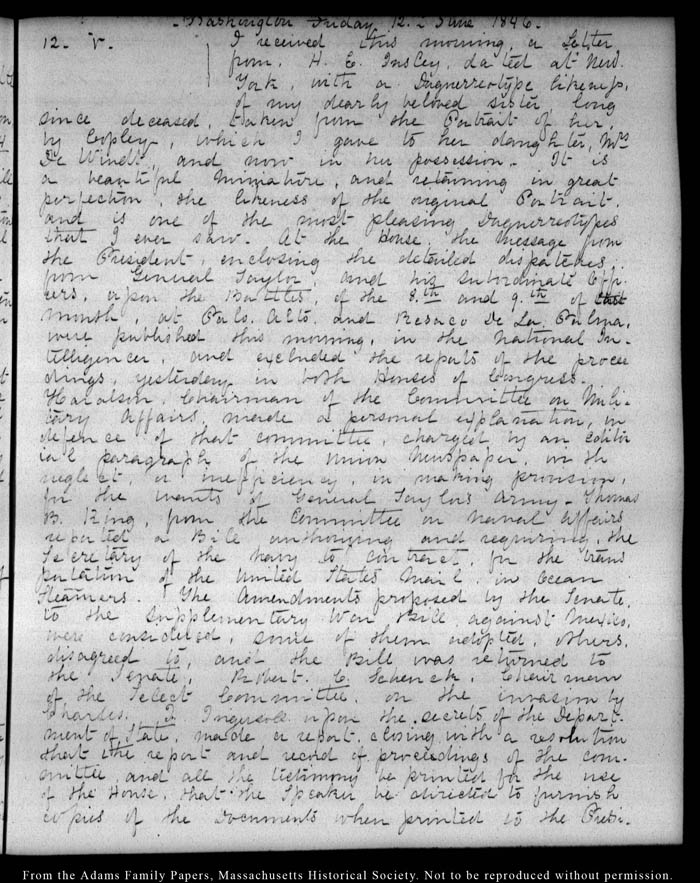 Washington Friday 12. June 1846.
12. V. I received this morning, a Letter
from, H. E. Insley, dated at New
York, with a Daguerreotype likeness,
of my dearly beloved sister, long
since deceased, taken from the Portrait of her,
by Copley, which I gave to her daughter, Mrs
De Windt, and now in her possession. It is
a beautiful miniature, and retaining in great
perfection, the likeness of the original Portrait,
and is one of the most pleasing Daguerreotypes
that I ever saw. At the House, the Message from
the President, enclosing the detailed dispatches
from General Taylor and his subordinate Offi-
cers, upon the Battles, of the 8.th and 9.th of last
month, at Palo Alto, and Resaca De La Palma,
were published this morning, in the National In-
telligencer, and excluded the reports of the procee
dings, yesterday in both Houses of Congress.
Haralson, Chairman of the Committee on Mili-
tary Affairs, made a personal explanation, in
defence of that committee, charged by an editor
ial paragraph of the Union Newspaper, with
neglect, or inefficiency, in making provision,
for the wants of General Taylors Army. Thomas
B. King, from the Committee on Naval Affairs
reported a Bill authorizing and requiring, the
Secretary of the Navy to contract, for the trans
portation of the United States Mail, in Ocean
Steamers. The Amendments proposed by the Senate,
to the supplementary War Bill against Mexico,
were considered, some of them adopted, others,
disagreed to, and the Bill was returned to
the Senate, Robert. C. Schenck, Chairman
of the Select Committee, on the invasion by
Charles. J. Ingersoll upon the secrets of the Depart-
ment of State, made a report, closing with a resolution
that the report and record of proceedings of the com-
mittee, and all the testimony be printed for the use
of the House, that the Speaker be directed to furnish
copies of the Documents when printed to the Presi-
From the Adams Family Papers, Massachusetts Historical Society. Not to be reproduced without permission.